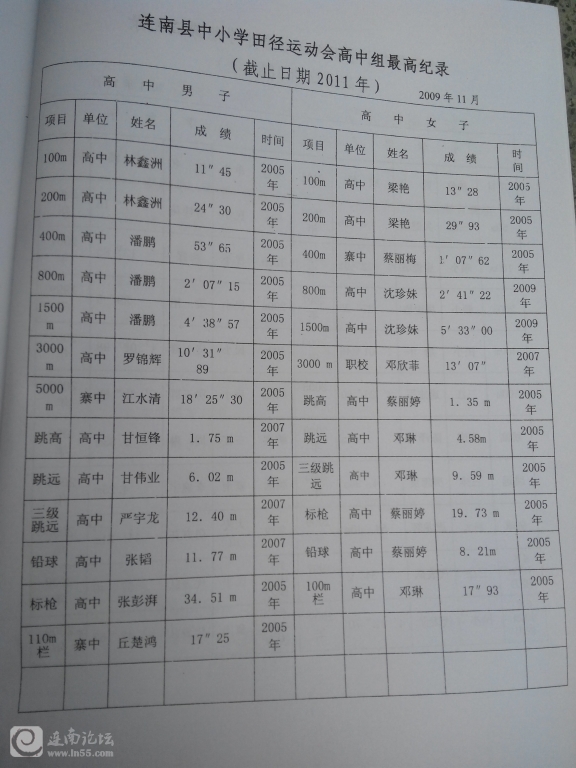 连南县中小学田径运动会高中组最高纪录
(截止日期 2011 年)
2009 年 11 月
高 中 男 子 高 中 女 子
项目 单位 姓名 成 绩 时间 项目 单位 姓名 成 绩 时间
100m 高中 林鑫洲 11″45 2005年 100m 高中 梁艳 13″28 2005年
200m 高中 林鑫洲 24″30 2005年 200m 高中 梁艳 29″93 2005年
400m 高中 潘鹏 53″65 2005年 400m 寨中 蔡丽梅 1′07″62 2005年
800m 高中 潘鹏 2′07″15 2005年 800m 高中 沈珍妹 2′41″22 2009年
1500m 高中 潘鹏 4′38″57 2005年 1500m 高中 沈珍妹 5′33″00 2009年
3000m 高中 罗锦辉 10′31″89 2005年 3000 m 职校 邓欣菲 13′07″ 2007年
5000m 寨中 江水清 18′25″30 2005年 跳高 高中 蔡丽婷 1.35 m 2005年
跳高 高中 甘恒锋 1.75 m 2007年 跳远 高中 邓琳 4.58m 2005年
跳远 高中 甘伟业 6.02 m 2005年 三级跳远 高中 邓琳 9.59 m 2005年
三级跳远 高中 严宇龙 12.40 m 2007年 标枪 高中 蔡丽婷 19.73 m 2005年
铅球 高中 张韬 11.77 m 2007年 铅球 高中 蔡丽婷 8.21m 2005年
标枪 高中 张彭湃 34.51 m 2005年 100m栏 高中 邓琳 17″93 2005年
110m栏 寨中 丘楚鸿 17″25 2005年
连南论坛
www.ln55.com